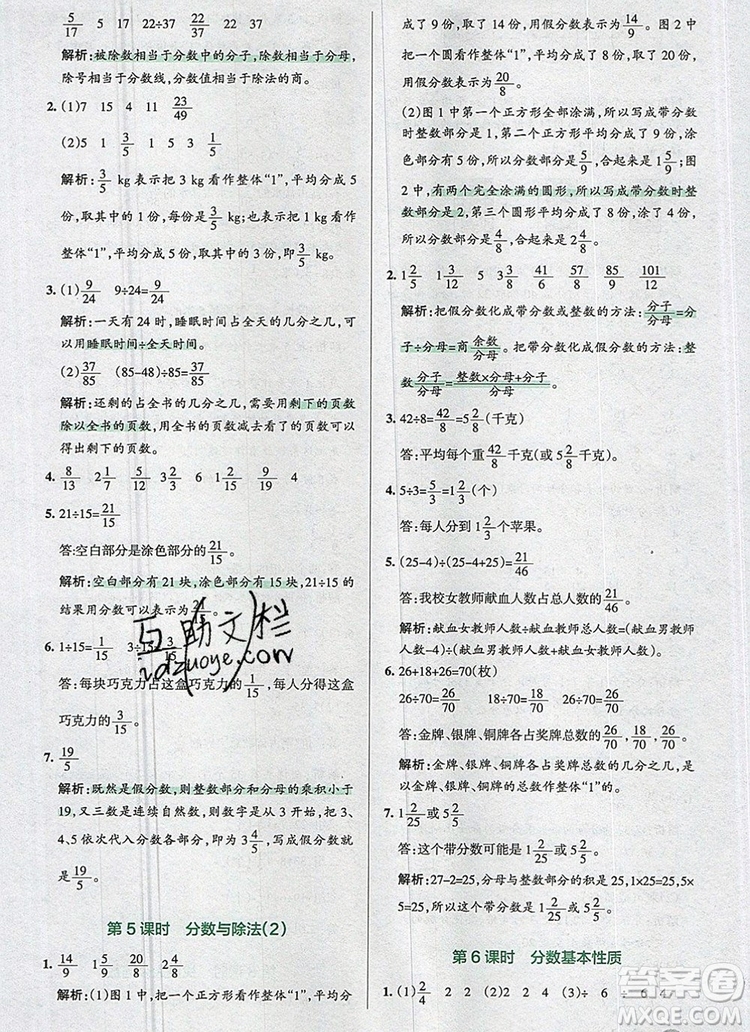 5/17 5 17 22÷37 22 37
解析:被除数相当于分数中的分子,除数相当于分母,
除号相当于分数线,分数值相当于除法的商。
2. (1)7 15 4 11 23/49
(2)5 1 3/5 1 3
解析:3/5 kg表示把3 kg看作整体“1”,平均分成5
份,取其中的1份,每份是3/5 kg;也表示把1 kg看作
整体“1”,平均分成5份,取其中的3份,即3/5 kg。
3. (1)9/24 9÷24=9/24
解析:一天有24时,睡眠时间占全天的几分之几,可
以用睡眠时间÷全天时间。
(2)37/85 (85-48)÷85=37/85
解析:还剩的占全书的几分之几,需要用剩下的页数
除以全书的页数,用全书的页数减去看了的页数可以
得出剩下的页数。
4. 8/13 2 1/7 5 3 2/3 6 1 4/9
5. 21÷15=21/15
答:空白部分是涂色部分的21/15。
解析:空白部分有21块,涂色部分有15块,21÷15的
结果用分数可以表示为21/15。
6. 1÷15=1/15 3÷15=3/15
答:每块巧克力占这盒巧克力的1/15,每人分得这盒
巧克力的3/15。
7. 19/5
解析:既然是假分数,则整数部分和分母的乘积小于
19,又三数是连续自然数,所以从3开始,把3、
4、5依次代入分数各部分,即为3 4/5,写成假分数就
是19/5。
第5课时 分数与除法(2)
1. 14/9 1 5/9 20/8 2 4/8
解析:(1)图1中,把一个正方形看作整体“1”,平均分
成了9份,取了14份,所以用假分数表示为14/9。图2中
把一个圆看作整体“1”,平均分成了8份,取了20份,
用假分数表示为20/8。
(2)图1中第一个正方形全部涂满,所以写成带分数
时整数部分是1,第二个正方形平均分成了9份,涂
色部分有5份,分数部分是5/9,合起来是1 5/9;图
2中,有两个完全涂满的圆形,所以写成带分数时整
数部分是2,第三个圆形平均分成了8份,涂了4份,
所以分数部分是4/8,合起来是2 4/8。
2. 1 2/5 1 3/12 5 3/8 41/6 57/8 85/9 101/12
解析:把假分数化成带分数或整数的方法:分子/分母=分
子÷分母=商 余数/分母。把带分数化成假分数的方法:整
数 分子/分母=整数×分母+分子/分母。
3. 42÷8=42/8=5 2/8(千克)
答:平均每个重42/8千克(或5 2/8千克)。
4. 5÷3=5/3=1 2/3(个)
答:每人分到1 2/3个苹果。
5. (25-4)÷(25-4+25)=21/46
答:我校女教师献血人数占总人数的21/46。
解析:献血女教师人数÷献血总人数=献血女教师
人数÷(献血女教师人数+献血男教师人数)。
6. 26+18+26=70(枚)
26÷70=26/70 18÷70=18/70 26÷70=26/70
答:金牌、银牌、铜牌各占奖牌总数的26/70,18/70,26/70。
解析:金牌、银牌、铜牌各占奖牌总数的几分之几,就
是以金牌、银牌、铜牌的总数作整体“1”。
7. 1 2/25或5 2/5
答:这个带分数可能是1 2/25或5 2/5。
解析:27-2=25,分母与整数部分的积是25,25=5×
5=1×25,所以带分数可能是1 2/25或5 2/5。
第6课时 分数基本性质
1. (1)2/4 2 2 (2)2 4 (3)÷ 6 ÷ 6
互助文栏
idzuoye.com
答案圈
MXQE.COM